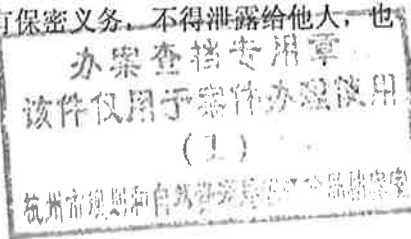 有保密义务，不得泄露给他人，也
办案查档专用章
该件仅用于案件办理使用
(1)
杭州市规划和自然资源局